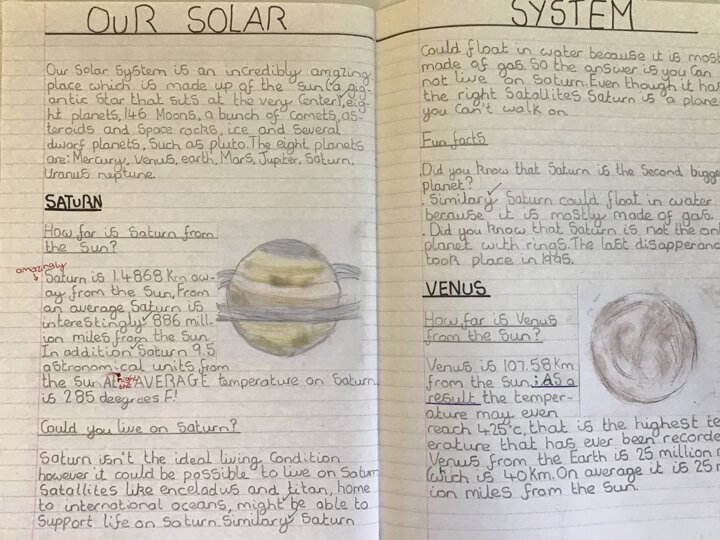 OUR SOLAR
Our Solar System is an incredibly amazing
place which is made up of the sun (a gig-
antic Star that sits at the very Center), eig-
ht planets, 146 Moons, a bunch of Comets, as-
teroids and Space rocks, ice and Several
dwarf planets, Such as pluto. The eight planets
are: Mercury, Venus, earth, Mars, Jupiter, Saturn.
Uranus neptune.
SATURN
How far is Saturn from
the Sun?
amazingly
Saturn is 1.4868 Km aw-
ay from the Sun, From
an average Saturn is
interestingly 886 mill-
ion miles from the Sun.
In addition Saturn 9.5
astronomical units from
the Sun. At the AVERAGE temperature on Saturn
is 285 deegrees F!
Could you live on Saturn?
Saturn isn't the ideal living Condition
however it could be possible to live on Saturn
Satallites like enceladus and titan, home
to international oceans, might be able to
Support life on Saturn. Similary Saturn
SYSTEM
Could float in water because it is most
made of gas. So the answer is you Can
not live on Saturn. Even though it has
the right Satallites Saturn is a plane
you Can't walk on.
Fun facts
. Did you Know that Saturn is the Second bigge
planet?
. Similary Saturn could float in water
because it is mostly made of gas.
. Did you Know that Saturn is not the onl
planet with rings. The last disapperanc
took place in 1995.
VENUS
How far is Venus
from the Sun?
Venus is 107.58 Km
from the Sun. ; As a
result the temper-
ature may even
reach 425°c, that is the highest te
erature that has ever been recorde
Venus from the Earth is 25 million m
(wich is 40 Km. On average it is 25 m
ion miles from the Sun